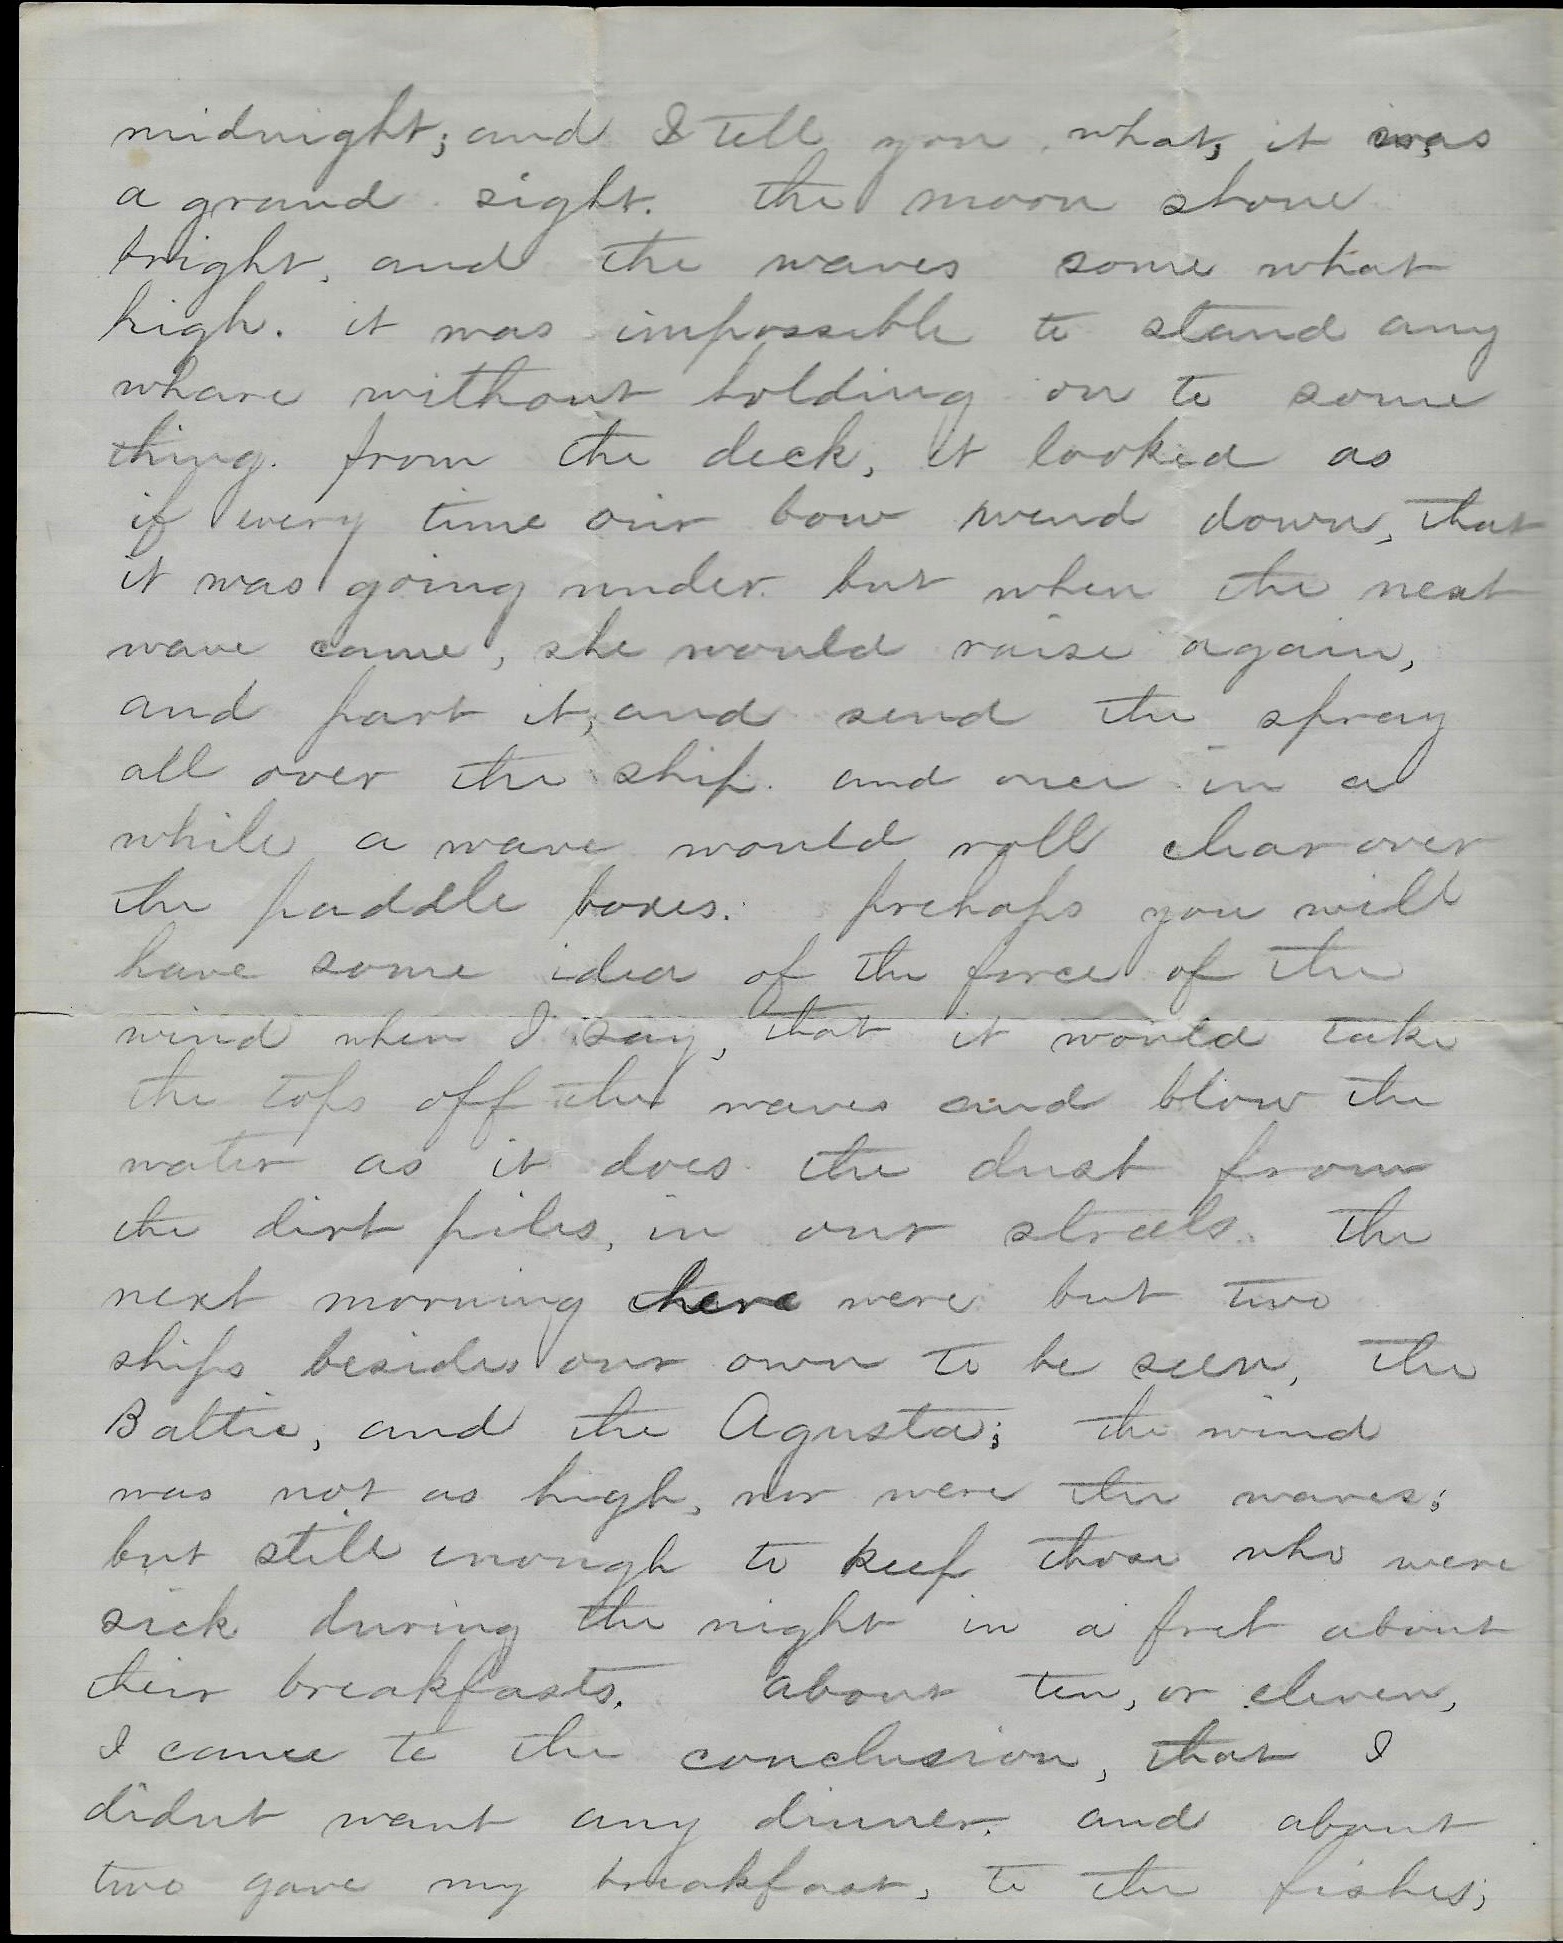 midnight; and I tell you what, it was
a grand sight. the moon shone
bright, and the waves some what
high. it was impossible to stand any
whare without holding on to some
thing. from the deck, it looked as
if every time our bow wend down, that
it was going under. but when the next
wave came, she would raise again,
and part it, and send the spray
all over the ship. and once in a
while a wave would roll clear over
the paddle boxes. prehaps you will
have some idea of the force of the
wind when I say, that it would take
the tops off the waves and blow the
water as it does the dust from
the dirt piles, in our streets. The
next morning there were but two
ships besides our own to be seen, the
Baltic, and the Agusta; the wind
was not as high, nor were the waves;
but still enough to keep those who were
sick during the night in a fret about
their breakfasts. about ten, or eleven,
I came to the conclusion, that I
didnt want any dinner. and about
two gave my breakfast, to the fishes;